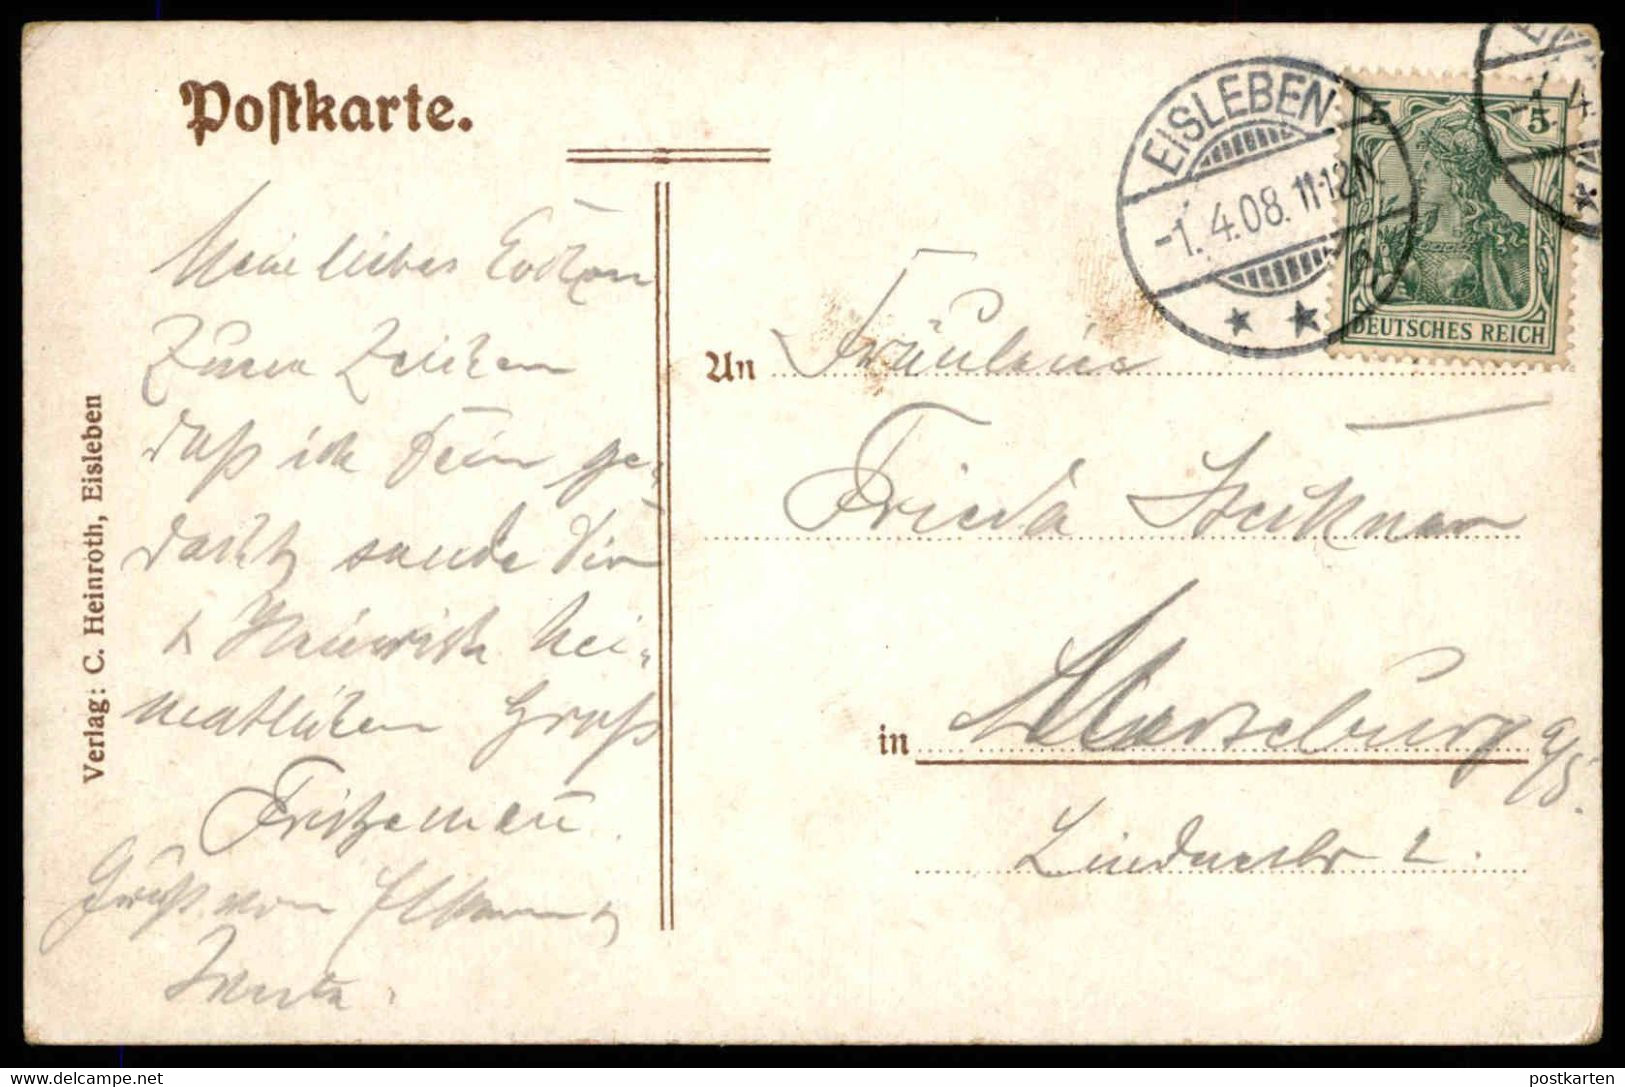 Postkarte.
Meine liebes
Zum Zeichen
daß ich Dein ge-
dacht, sende Dir
u. Heinrich hei-
matlichen Gruß
Gruß von
Verlag: C. Heinroth, Eisleben
EISLEBEN
-1.4.08. 11-12N.
* *
5
DEUTSCHES REICH
An Fräulein
Frieda
in Merseburg a/S.
Lindenstr 2.
delcampe.net
postkarten